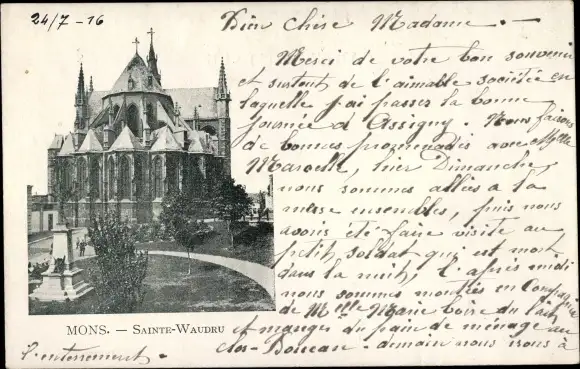 24/7 - 16
Bien chère Madame. -
Merci de votre bon souvenir
et surtout de l'aimable société en
laquelle j'ai passer la bonne
journée d'Assigny. Nous faisons
de bonnes promenades avec Mlle
Marcelle, hier Dimanche,
nous sommes allées à la
messe ensembles, puis nous
avons été faire visite au
petit soldat qui est mort
dans la nuit, l'après midi
nous sommes montées en Compagnie
de Melle Marie boire du lait
et manger du pain de ménage au
Clos-. demain nous irons à
l'enterrement.
MONS. — SAINTE-WAUDRU